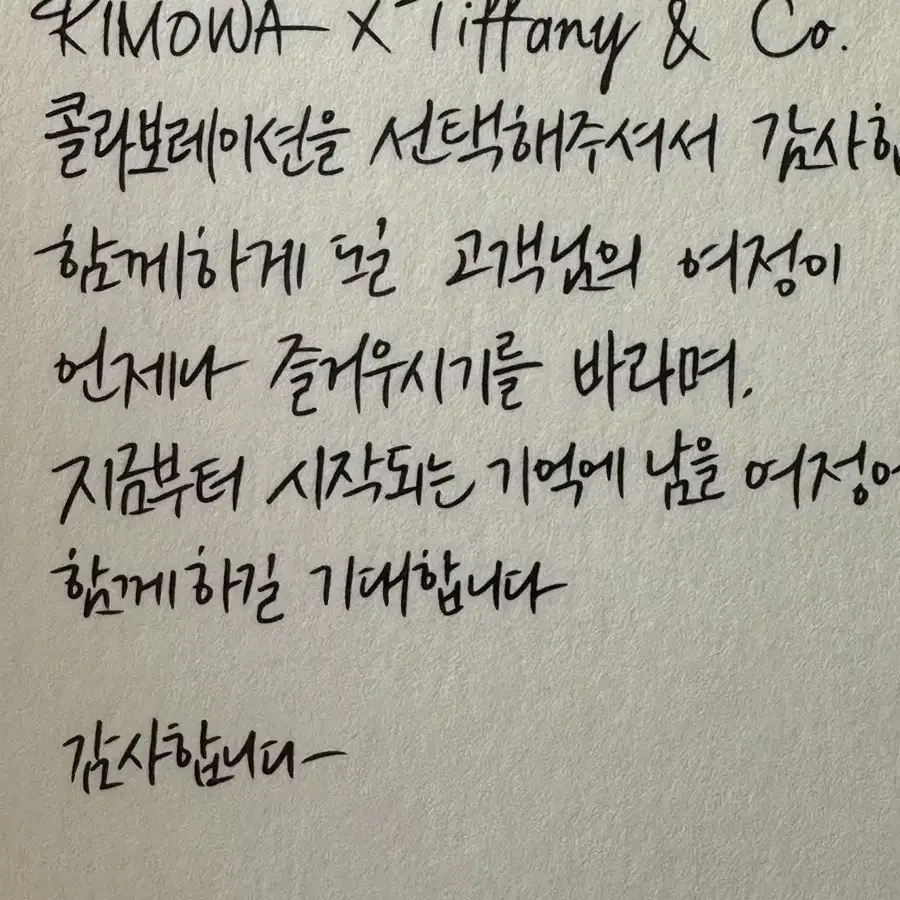 RIMOWA X Tiffany & Co.
콜라보레이션을 선택해주셔서 감사합
함께하게 될 고객님의 여정이
언제나 즐거우시기를 바라며,
지금부터 시작되는 기억에 남을 여정에
함께하길 기대합니다
감사합니다